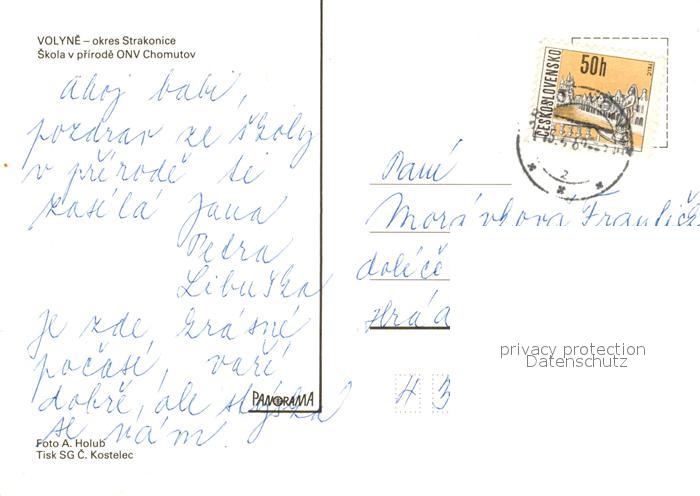 VOLYNĚ – okres Strakonice
Škola v přírodě ONV Chomutov
Ahoj babi,
pozdrav ze školy
v přírodě ti
zasílá Jana
Petra
Libuška
Je zde krásné
počasí, vaří
dobře, ale stýská
se nám.
PANORAMA
Foto A. Holub
Tisk SG Č. Kostelec
50h
ČESKOSLOVENSKO
TELČ
2
Paní
Morávkova
privacy protection
Datenschutz